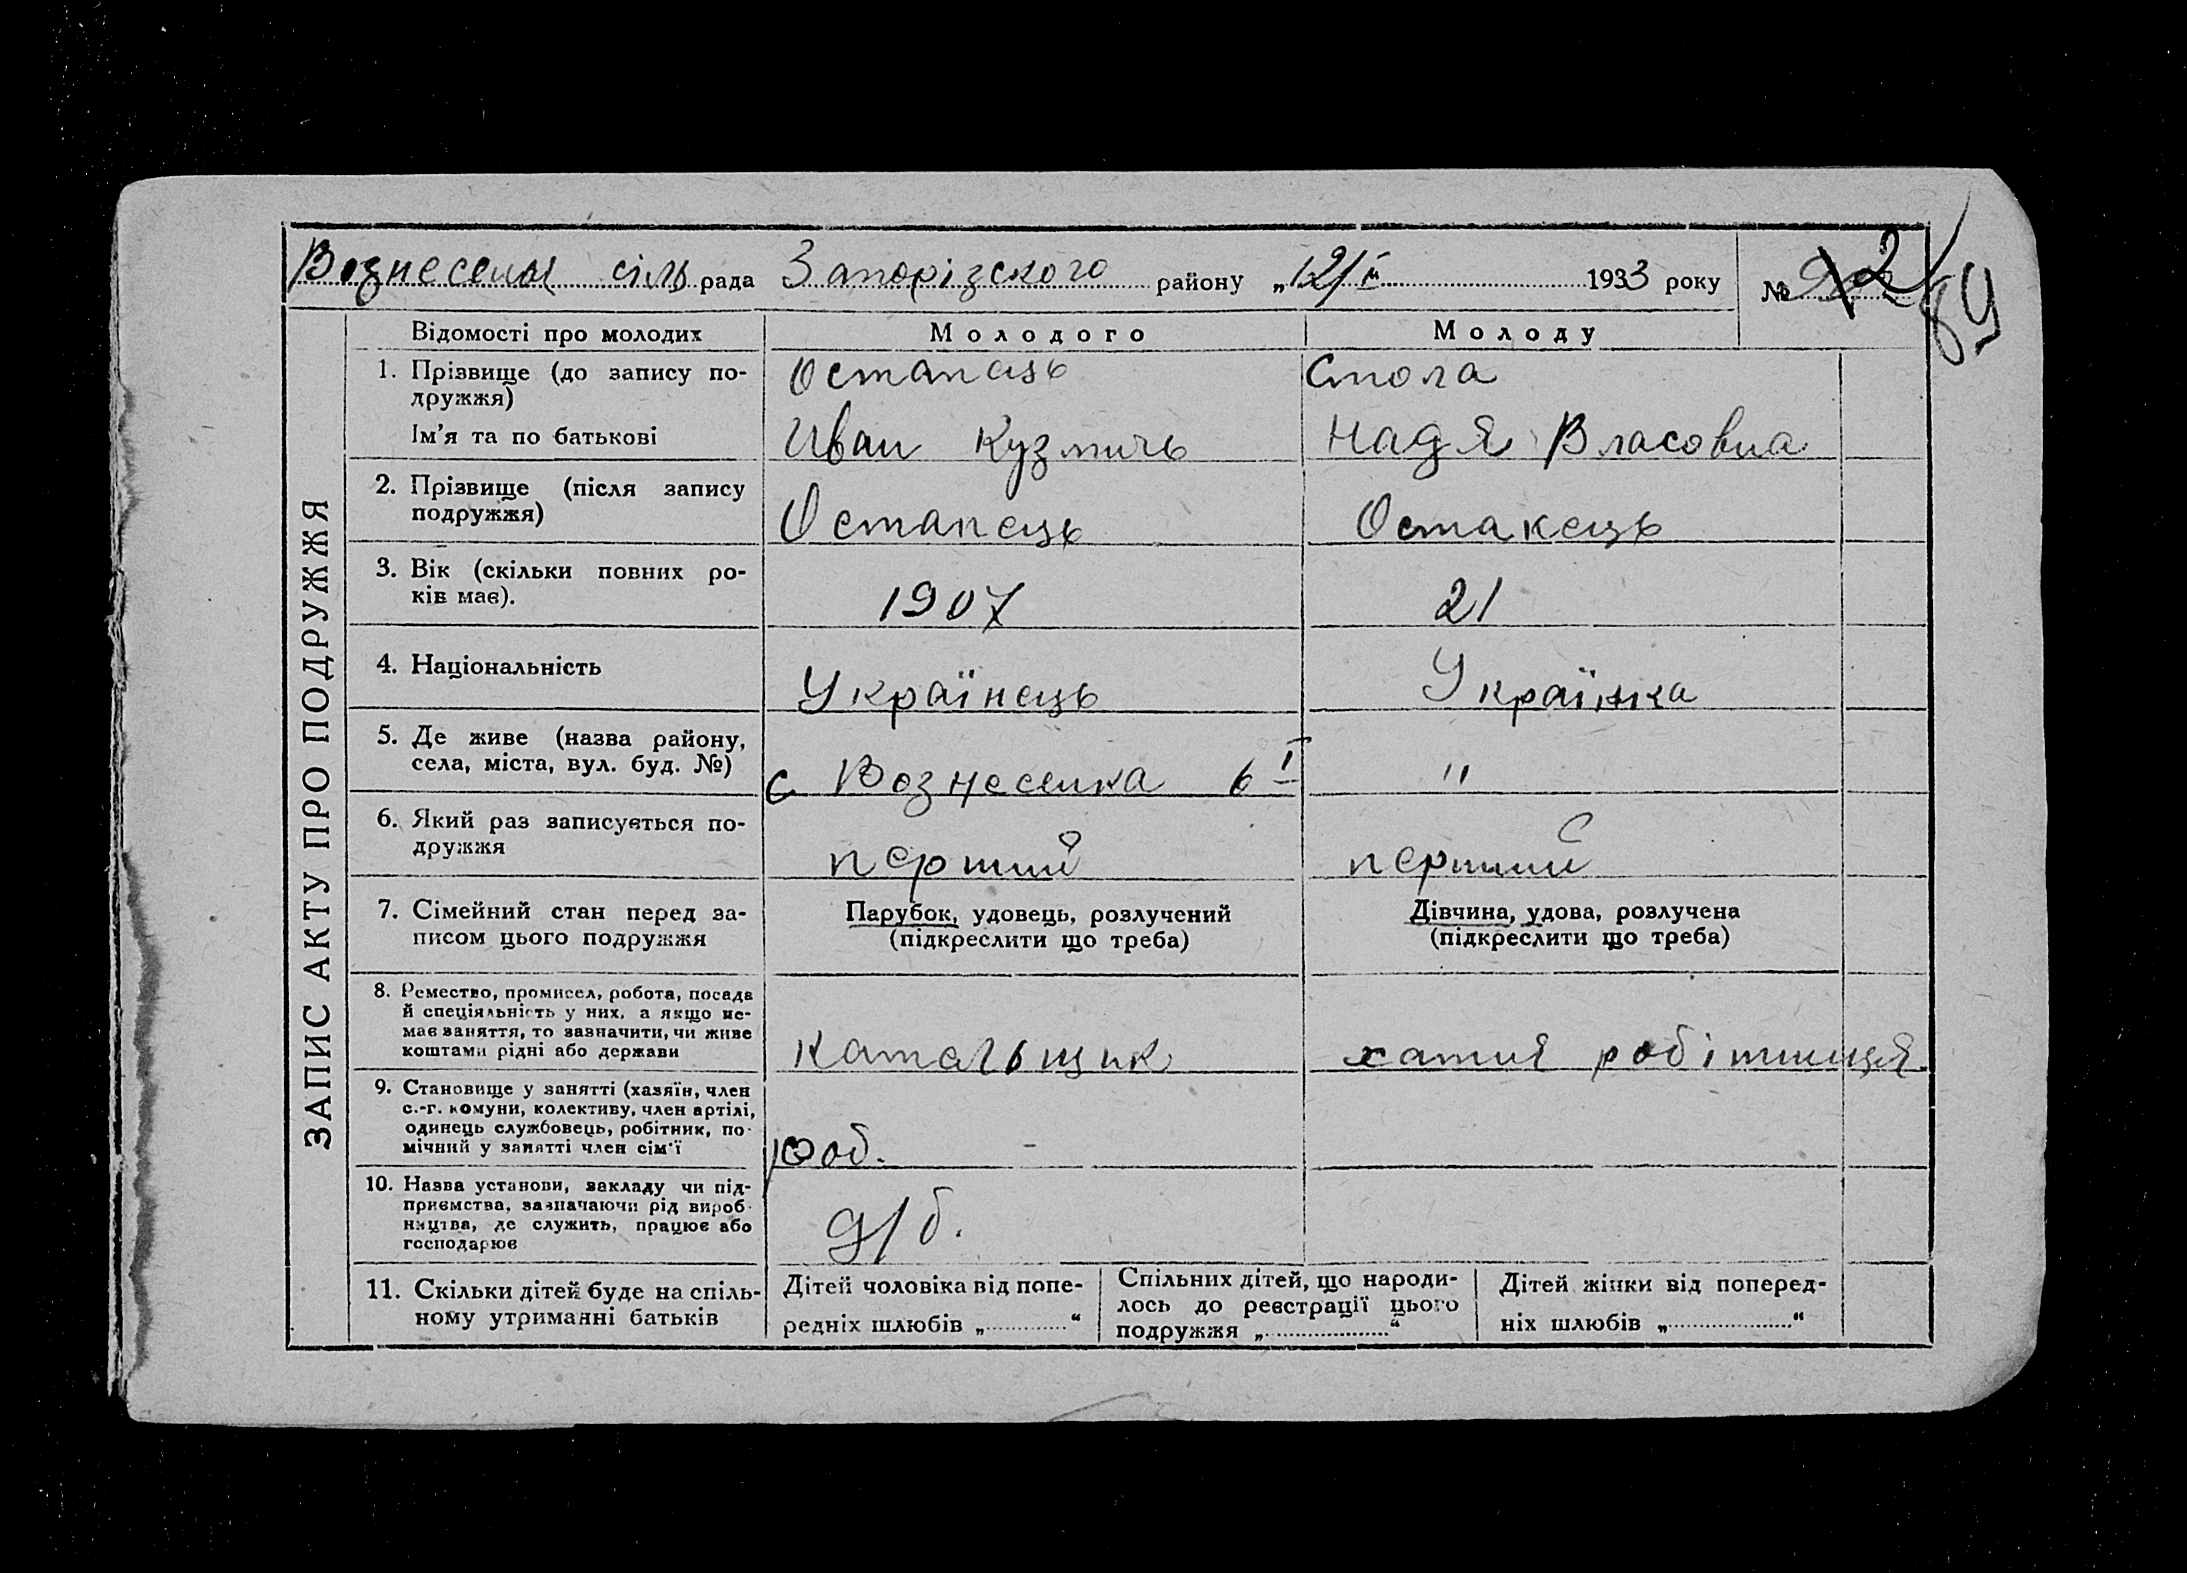 Вознесенск сіль рада Запорізского району „12/I 1933 року № 2
89
ЗАПИС АКТУ ПРО ПОДРУЖЖЯ
Відомості про молодих Молодого Молоду
1. Прізвище (до запису по-
дружжя) Остапець Стола
Ім’я та по батькові Иван Кузмичь Надя Власовна
2. Прізвище (після запису
подружжя) Остапець Остапець
3. Вік (скільки повних ро-
ків має). 1907 21
4. Національність Українець Українка
5. Де живе (назва району,
села, міста, вул. буд. №) с Вознесенка 6 I "
6. Який раз записується по-
дружжя перший перший
7. Сімейний стан перед за-
писом цього подружжя
Парубок, удовець, розлучений
(підкреслити що треба)
Дівчина, удова, розлучена
(підкреслити що треба)
8. Ремество, промисел, робота, посада
й спеціяльність у них, а якщо не-
має заняття, то зазначити, чи живе
коштами рідні або держави катальщик хатня робітниця
9. Становище у занятті (хазяїн, член
с.-г. комуни, колективу, член артілі,
одинець службовець, робітник, по-
мічний у занятті член сім’ї роб. -
10. Назва установи, закладу чи під-
приємства, зазначаючи рід вироб-
ництва, де служить, працює або
господарює д/б.
11. Скільки дітей буде на спіль-
ному утриманні батьків
Дітей чоловіка від попе-
редніх шлюбів „ “
Спільних дітей, що народи-
лось до реєстрації цього
подружжя „ “
Дітей жінки від поперед-
ніх шлюбів „ “